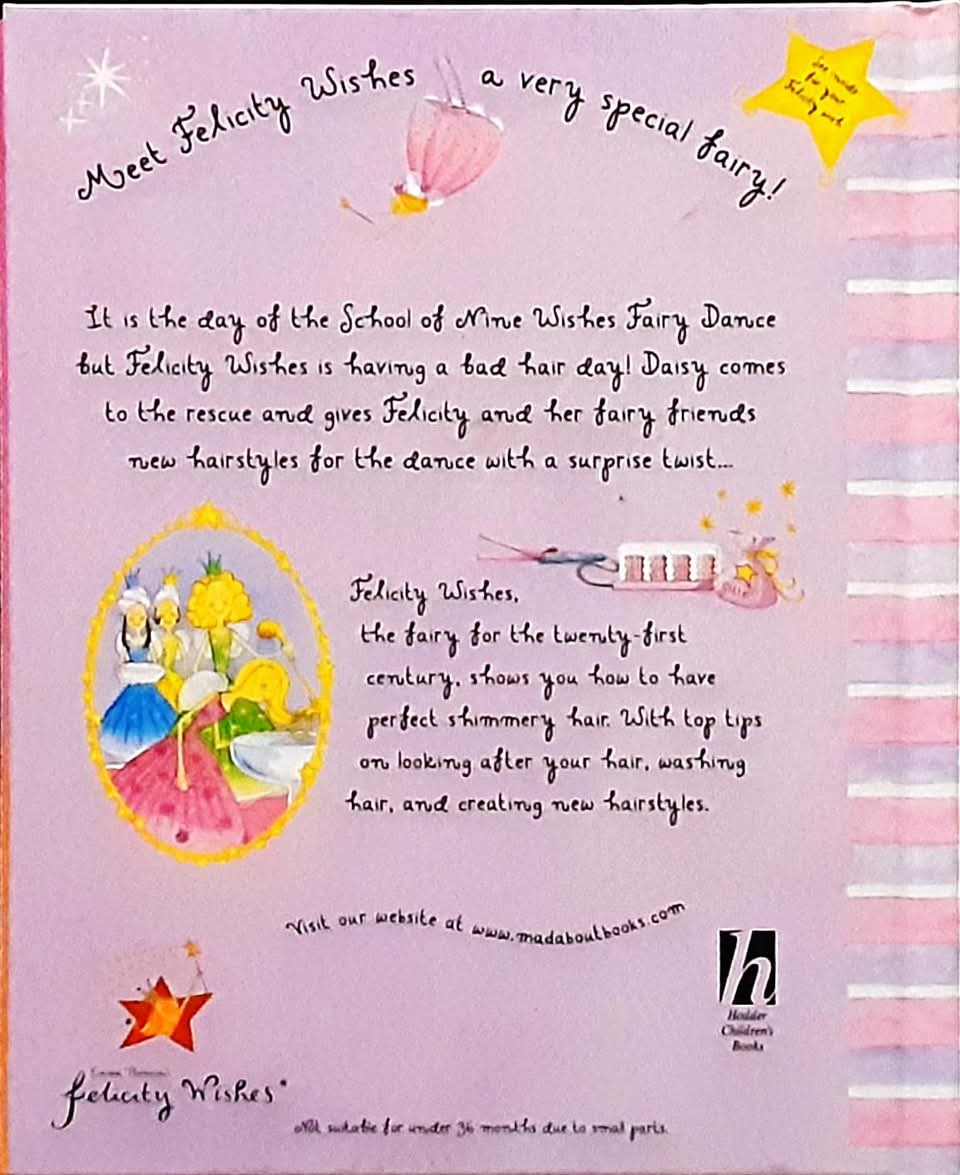 Meet Felicity Wishes a very special fairy!
See inside
for your
Felicity
It is the day of the School of Nine Wishes Fairy Dance
but Felicity Wishes is having a bad hair day! Daisy comes
to the rescue and gives Felicity and her fairy friends
new hairstyles for the dance with a surprise twist...
Felicity Wishes,
the fairy for the twenty-first
century, shows you how to have
perfect shimmery hair. With top tips
on looking after your hair, washing
hair, and creating new hairstyles.
Visit our website at www.madaboutbooks.com
h
Hodder
Children's
Books
Emma Thomson's
felicity Wishes
Not suitable for under 36 months due to small parts.